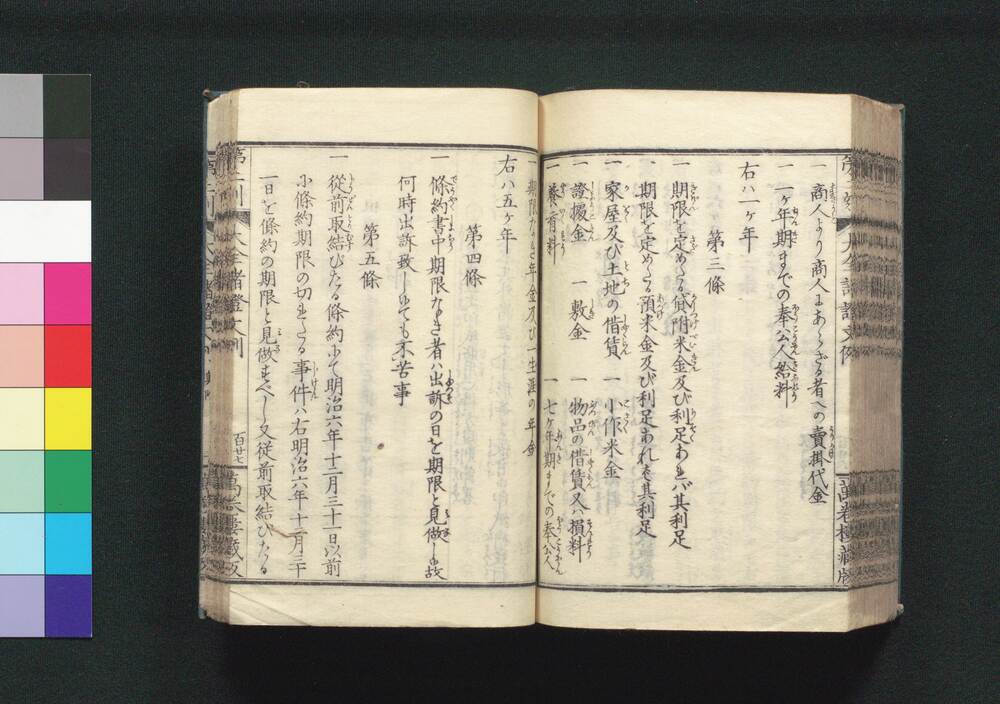 一 商人より商人にあらざる者への賣掛代金
一 一ヶ年期までの奉公人給料
右ハ一ヶ年
第三條
一 期限を定めたる貸附米金及び利足あれバ其利足
一 期限を定めたる預米金及び利足あれば其利足
一 家屋及び土地の借賃 一 小作米金
一 證據金 一 敷金 一 物品の借賃又ハ損料
一 養育料 一 七ヶ年期までの奉公人
一 期限なき年金及び一生涯の年金
右ハ五ヶ年
第四條
一 條約書中期限なき者ハ出訴の日を期限と見做し候故
何時出訴致し候ても不苦事
第五條
一 從前取結びたる條約にて明治六年十二月三十一日以前
に條約期限の切れたる事件ハ右明治六年十二月三十
一日を條約の期限と見做すべし又從前取結びたる
百廿七
萬卷樓藏版